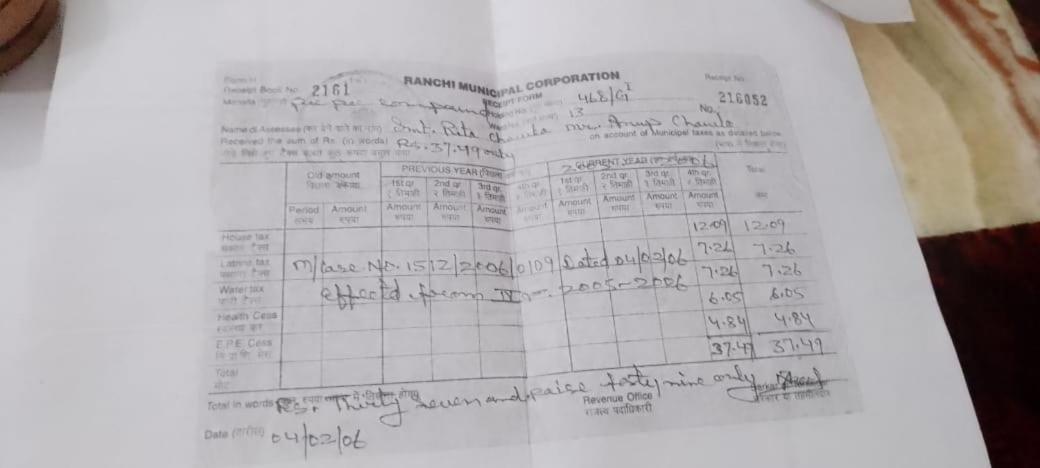 Form H
RANCHI MUNICIPAL CORPORATION
Receipt No.
Receipt Book No. 2161
RECEIPT FORM
468/G1
216052
Mohalla Pee Pee Compound
Holding No.
Ward No. 13
No.
Name of Assessee (कर देने वाले का नाम) Smt. Rita Chawla Mr. Anup Chawla
Received the sum of Rs. (in words) Rs. 37.49 only on account of Municipal taxes as detailed below
Old amount PREVIOUS YEAR CURRENT YEAR Total
1st qr. 2nd qr. 3rd qr. 4th qr. 1st qr. 2nd qr. 3rd qr. 4th qr.
१ तिमाही २ तिमाही ३ तिमाही १ तिमाही २ तिमाही ३ तिमाही
Period Amount Amount Amount Amount Amount Amount Amount Amount Amount
समय रुपया रुपया रुपया रुपया रुपया रुपया रुपया
House tax 12.09 12.09
Latrine tax M/Case No. 1512/2006/0109 Dated 04/02/06 7.26 7.26
Water tax effectd from IV 2005-2006 7.26 7.26
Health Cess 6.05 6.05
E.P.E. Cess 4.84 4.84
Total 37.49 37.49
Total in words Rs. Thirty seven and paise forty nine only
Revenue Office
राजस्व पदाधिकारी
Date (तारीख) 04/02/06